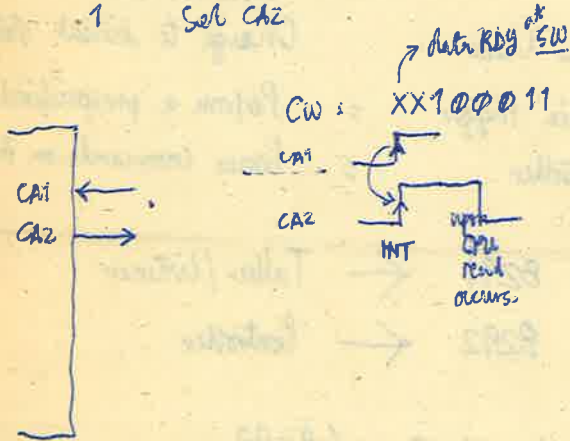 1 Set CA2
data RDY SW
CW : XX1ØØØ11
CA1
CA1
CA2
CA2
INT
upon
CPU
read
occurs.